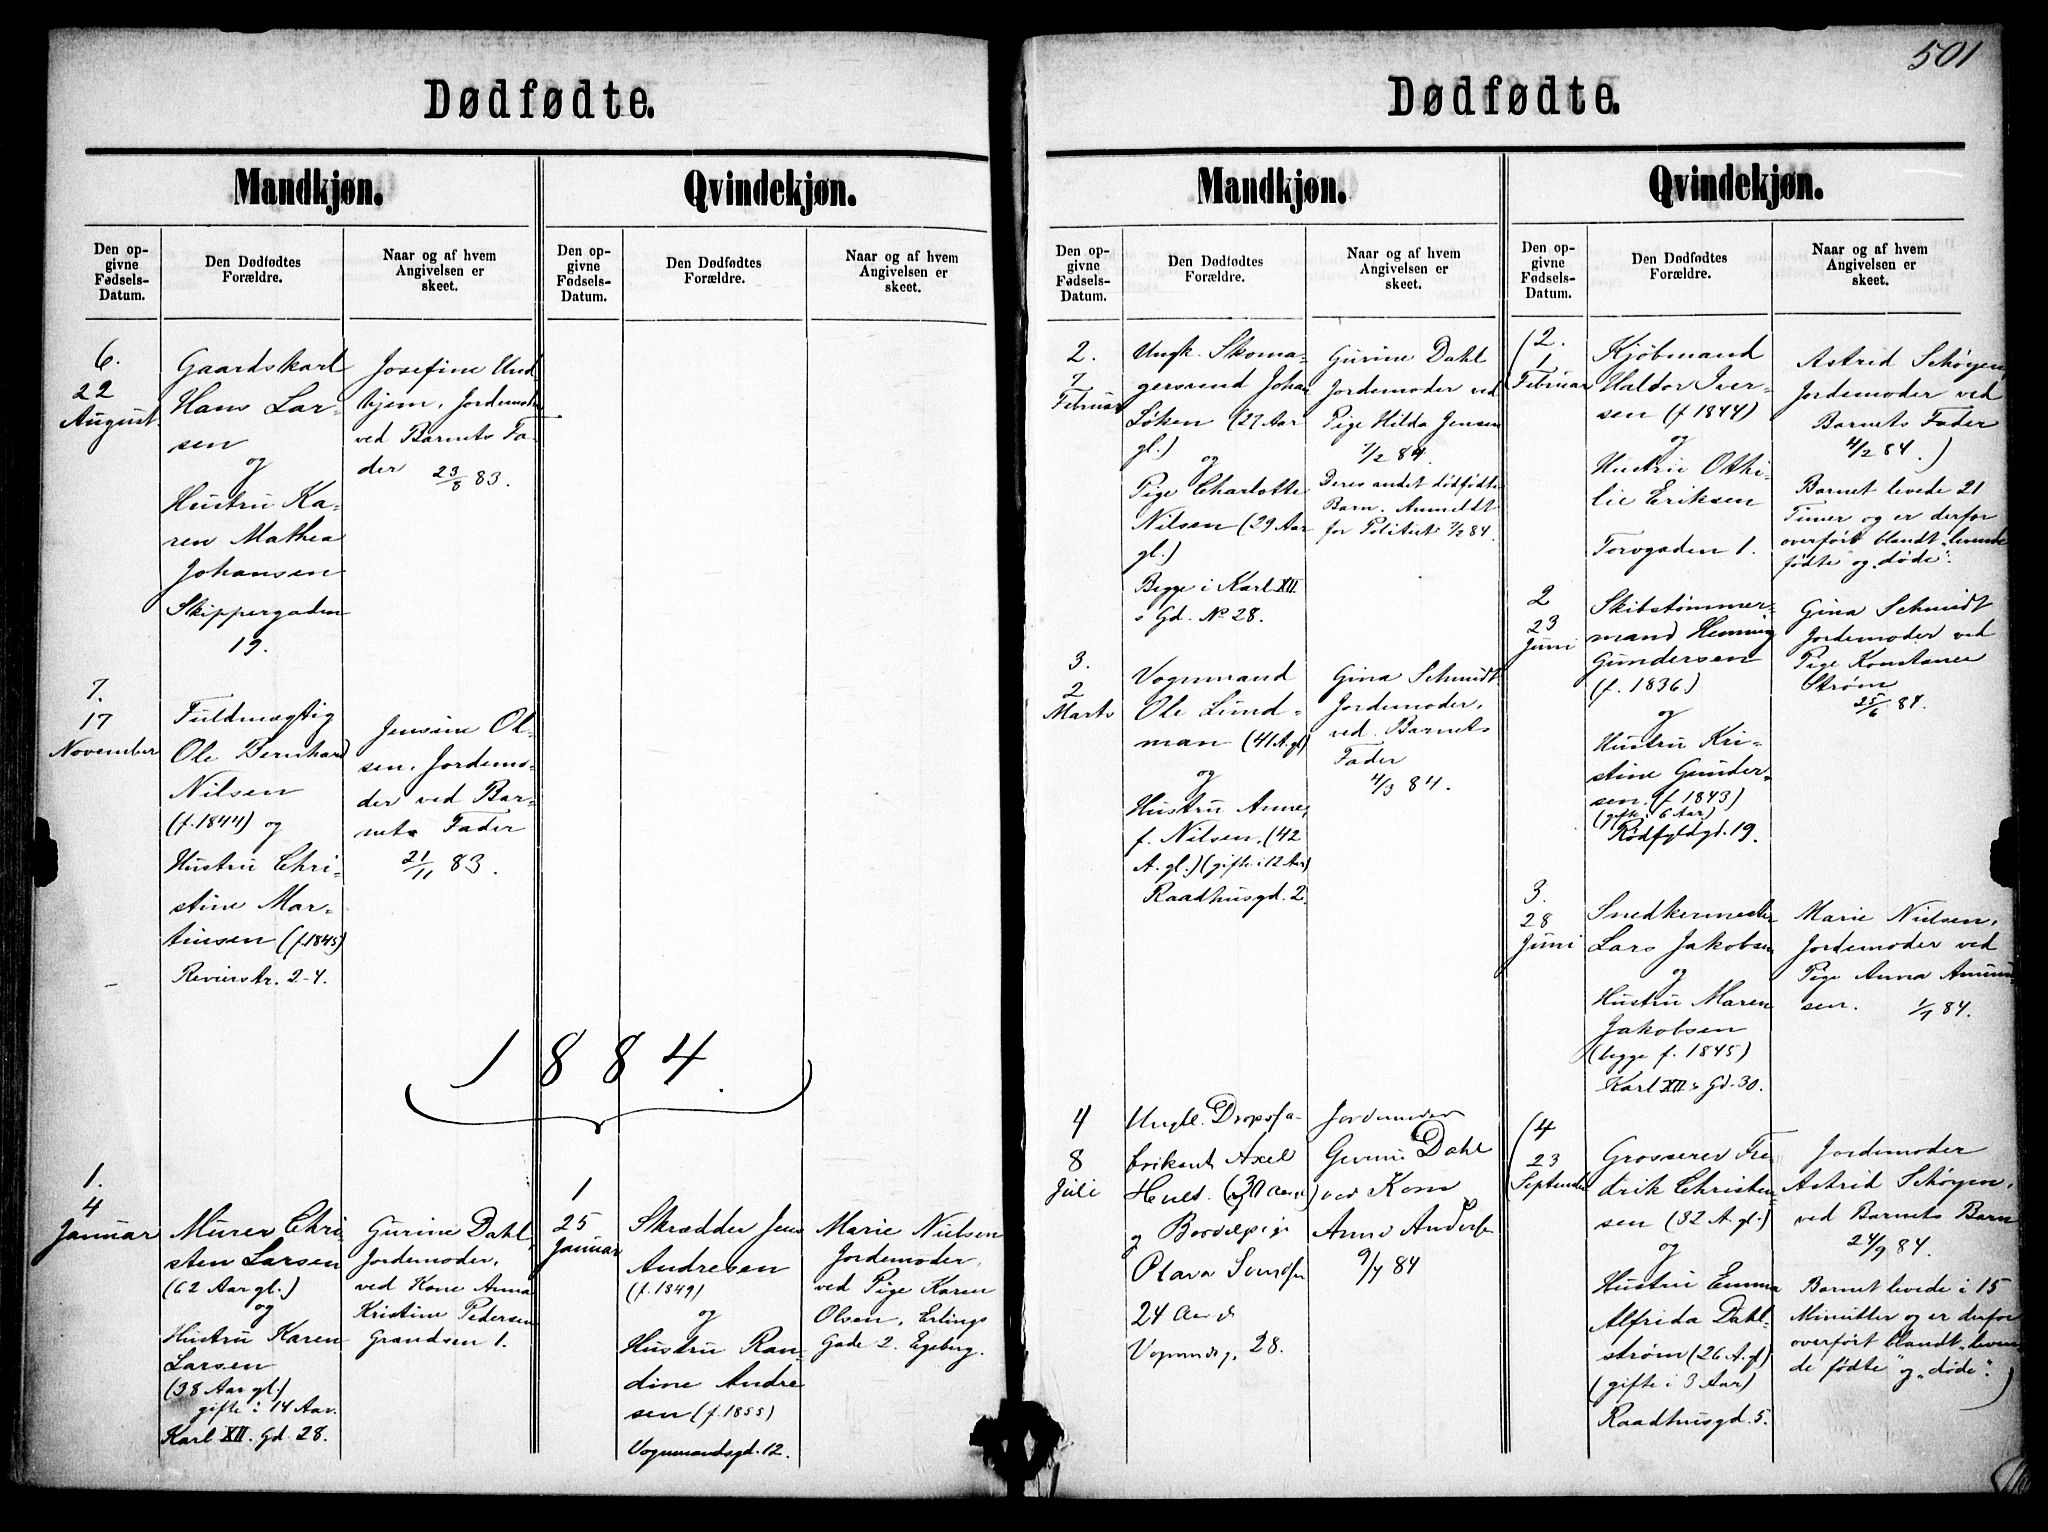 Dødfødte.
Mandkjøn.
Qvindekjøn.
Den op-
givne
Fødsels-
Datum.
Den Dødfødtes
Forældre.
Naar og af hvem
Angivelsen er
skeet.
Den op-
givne
Fødsels-
Datum.
Den Dødfødtes
Forældre.
Naar og af hvem
Angivelsen er
skeet.
6.
22
August
Gaardskarl
Hans Lar-
sen
og
Hustru Ka-
ren Mathea
Johansen
Skippergaden
19.
Josefine Und-
hjem, Jordemoder
ved Barnets Fa-
der 23/8 83.
7.
17
November
Fuldmægtig
Ole Bernhard
Nilsen
(f. 1844) og
Hustru Chri-
stine Mar-
tinsen (f. 1845)
Revierstr. 2-4.
Jensine Ol-
sen, Jordemo-
der ved Bar-
nets Fader
21/11 83.
1884.
1.
4
Januar
Murer Chri-
sten Larsen
(62 Aar gl.)
og
Hustru Karen
Larsen
(38 Aar gl.)
gifte i 14 Aar.
Karl XII. Gd. 28.
Gurine Dahl
Jordemoder,
ved Kone Anna
Kristine Pedersen
Grandsen 1.
1
25
Januar
Skrædder Jens
Andresen
(f. 1849)
og
Hustru Ran-
dine Andre
sen (f. 1855)
Vognmandsgd. 12.
Marie Nielsen
Jordemoder,
ved Pige Karen
Olsen, Erlings
Gade 2. Egeberg.
501
Dødfødte.
Mandkjøn.
Qvindekjøn.
Den op-
givne
Fødsels-
Datum.
Den Dødfødtes
Forældre.
Naar og af hvem
Angivelsen er
skeet.
Den op-
givne
Fødsels-
Datum.
Den Dødfødtes
Forældre.
Naar og af hvem
Angivelsen er
skeet.
2.
7
Februar
Ungk. Skoma-
gersvend Johan
Løken (27 Aar
gl.)
og
Pige Charlotte
Nilsen (29 Aar
gl.)
Begge i Karl XII
s Gd. No 28.
Gurine Dahl
Jordemoder ved
Pige Hilda Jensen
7/2 84.
Deres andet dødfødte
Barn. Anmeldt
for Politiet 7/2 84.
3.
2
Marts
Vognmand
Ole Lund-
man (41 A. gl)
og
Hustru Anne,
f. Nilsen, (42
A. gl.) (gifte i 12 Aar)
Raadhusgd. 2.
Gina Schmidt
Jordemoder,
ved Barnets
Fader
4/3 84.
4
8
Juli
Ungk. Dropsfa-
brikant Axel
Hult. (30 Aar)
og
Olava
24 Aar
Vognmdsg. 28.
Jordemoder
Gurine Dahl
ved Kone
Anne Anders
9/7 84
(2.
1
Februar
Kjøbmand
Haldor Iver-
sen (f. 1844)
og
Hustru Othi-
lie Eriksen
Torvgaden 1.
Astrid Schøyen,
Jordemoder ved
Barnets Fader
4/2 84.)
Barnet levede 21
Timer og er derfor
overført blandt "levende
fødte" og "døde".
2
23
Juni
Skibstømmer-
mand Henning
Gundersen
(f. 1836)
og
Hustru Kri-
stine Gunder-
sen. (f. 1843)
(gifte i 6 Aar)
Rødfyldgd. 19.
Gina Schmidt
Jordemoder ved
Pige Konstance
Strøm
25/6 84.
3.
28
Juni
Snedkermester
Lars Jakobsen
og
Hustru Maren
Jakobsen
(begge f. 1845)
Karl XII s Gd. 30.
Marie Nielsen,
Jordemoder ved
Pige Anna Amund-
sen. 1/7 84.
(4
23
September
Grosserer Fre-
drik Christen-
sen (32 A. gl.)
og
Hustru Emma
Alfrida Dahl-
strøm (26 A. gl)
(gifte i 3 Aar)
Raadhusgd. 5.
Jordemoder
Astrid Schøyen,
ved Barnets Barn
24/9 84.
Barnet levede i 15
Minutter og er derfor
overført blandt "leven-
de fødte" og "døde".)